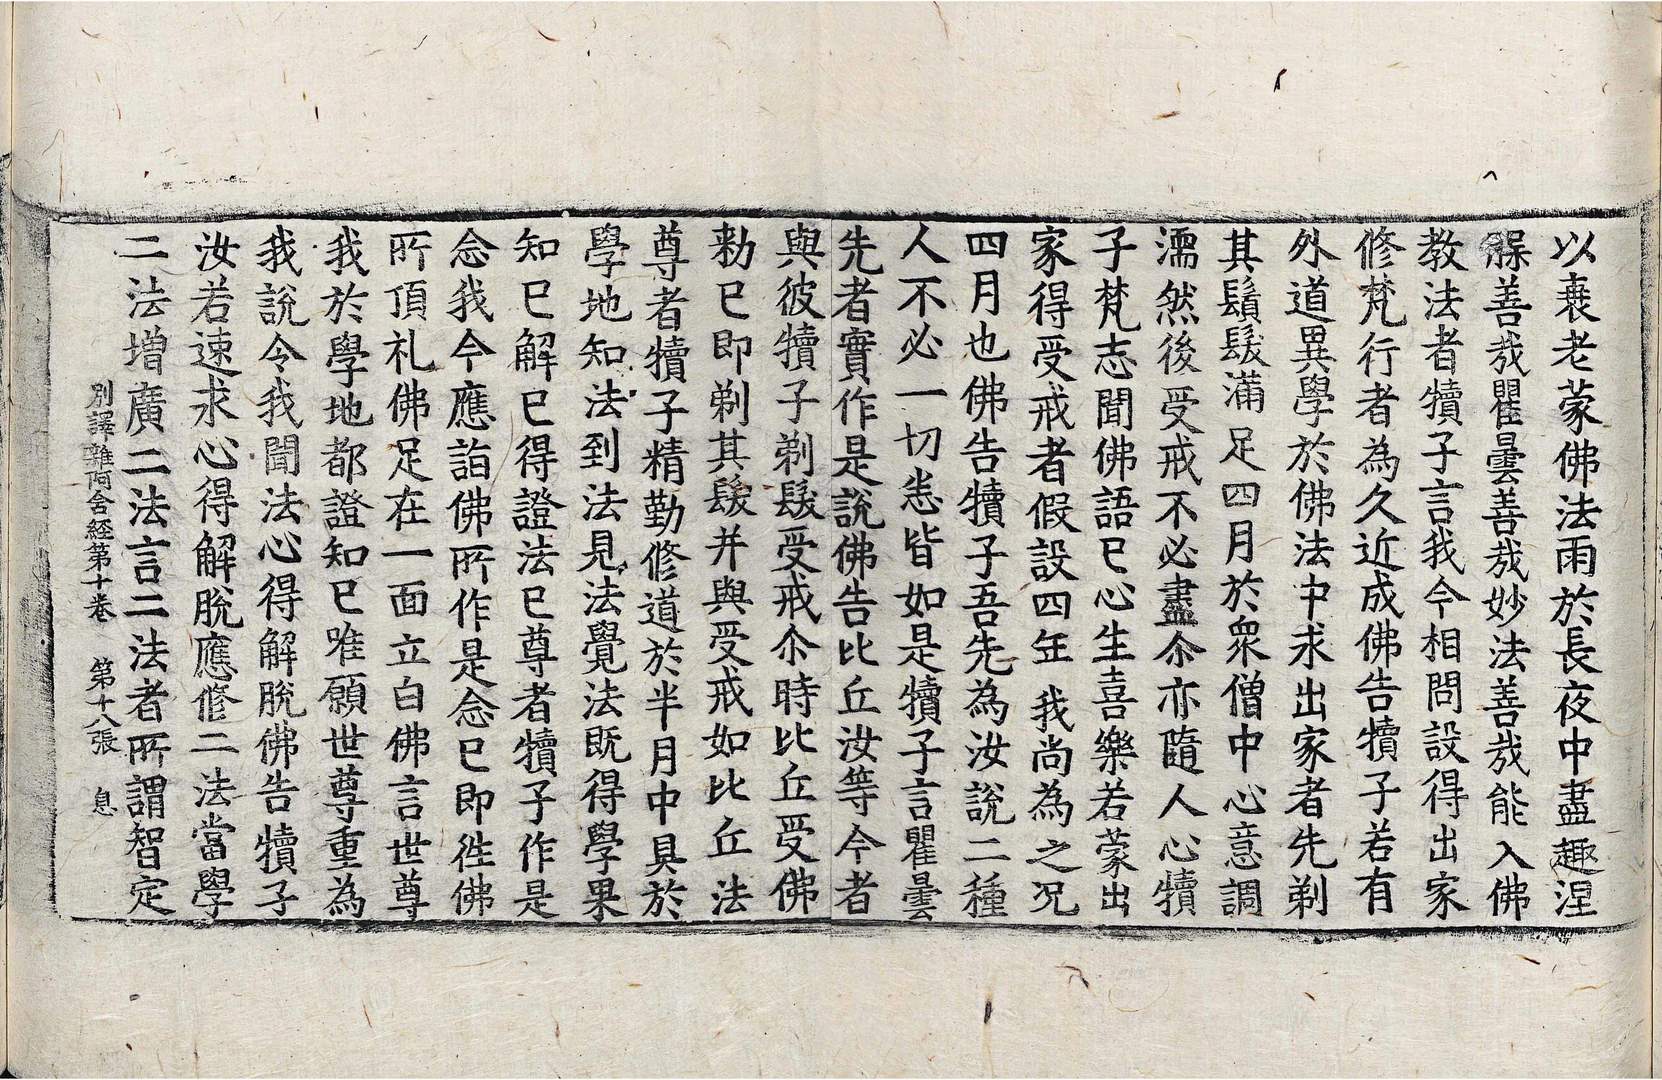 以衰老蒙佛法雨於長夜中盡趣涅
縣善哉瞿曇善哉妙法善哉能入佛
教法者犢子言我今相問設得出家
修梵行者為久近成佛告犢子若有
外道異學於佛法中求出家者先剃
其鬚髮滿足四月於衆僧中心意調
濡然後受戒不必盡尒亦隨人心犢
子梵志聞佛語已心生喜樂若蒙出
家得受戒者假設四年我尚為之况
四月也佛告犢子吾先為汝說二種
人不必一切悉皆如是犢子言瞿曇
先者實作是說佛告比丘汝等今者
與彼犢子剃髮受戒尒時比丘受佛
勑已即剃其髮并與受戒如比丘法
尊者犢子精勤修道於半月中具於
學地知法到法見法覺法既得學果
知已解已得證法已尊者犢子作是
念我今應詣佛所作是念已即徃佛
所頂礼佛足在一面立白佛言世尊
我於學地都證知已唯願世尊重為
我說令我聞法心得解脫佛告犢子
汝若速求心得解脫應修二法當學
二法増廣二法言二法者所謂智定
別譯雜阿含經第十卷　第十八張　息